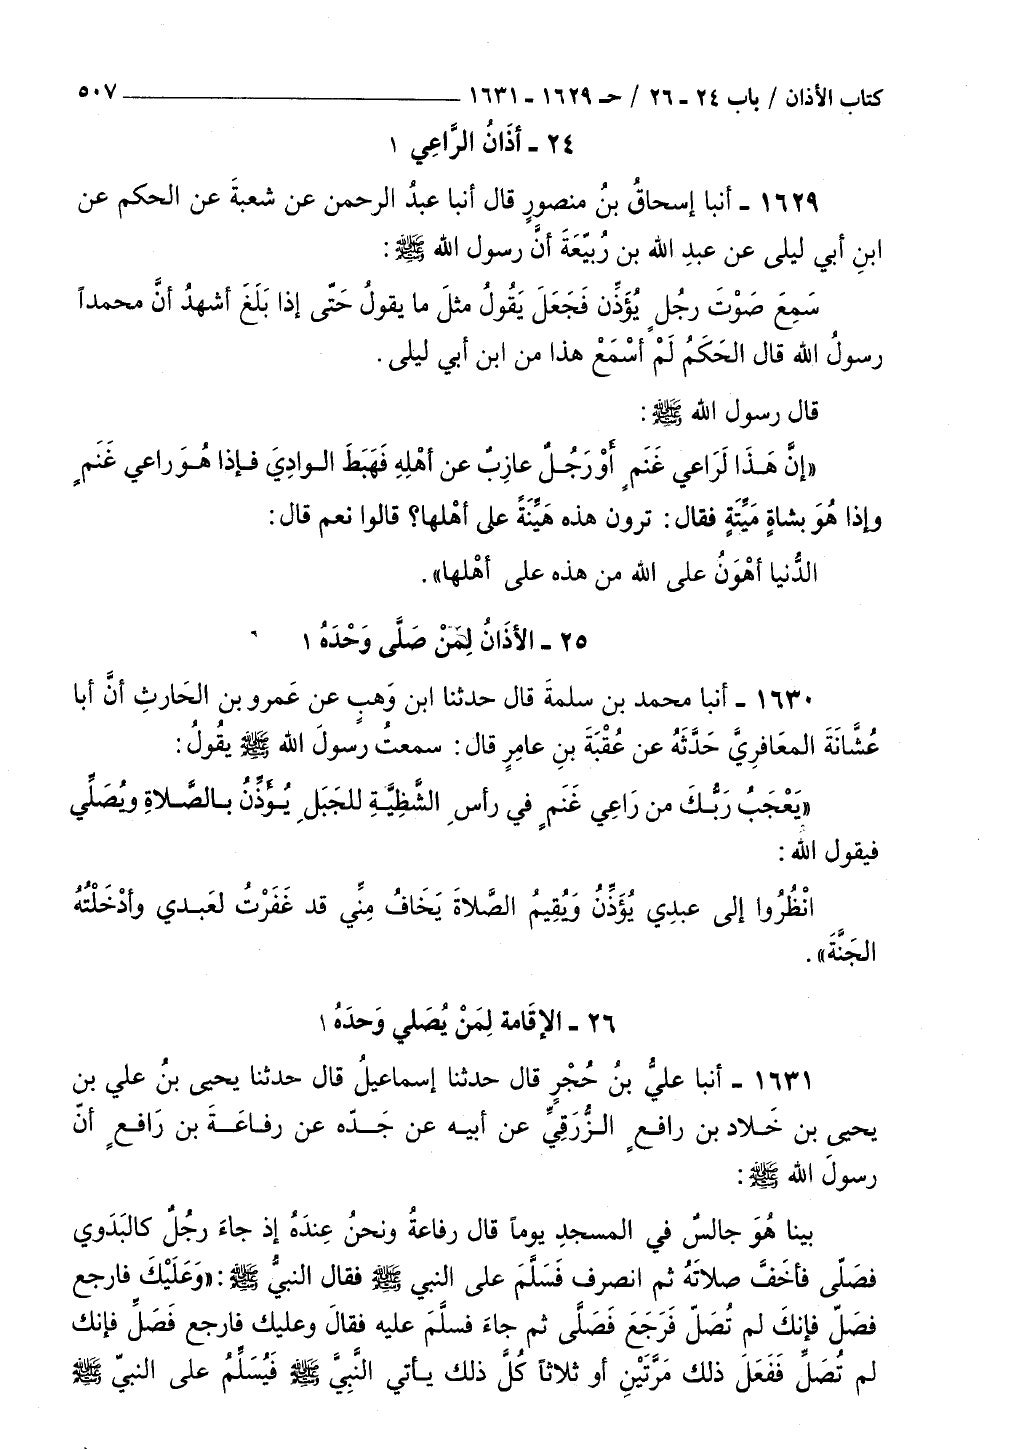 كتاب الأذان / باب ٢٤ - ٢٦ / حـ ١٦٢٩ - ١٦٣١ ــــــــــــــــــــ ٥٠٧
٢٤ - أذَانُ الرَّاعِي ١
١٦٢٩ - أنبا إسحاقُ بنُ منصورٍ قال أنبا عبدُ الرحمن عن شعبةَ عن الحكم عن
ابنِ أبي ليلى عن عبدِ الله بن رُبيّعَةَ أنَّ رسول الله ﷺ:
سَمِعَ صَوْتَ رجُلٍ يُؤَذِّن فَجَعَلَ يَقُولُ مثلَ ما يقولُ حَتّى إذا بَلَغَ أشهدُ أنَّ محمداً
رسولُ الله قال الحَكَمُ لَمْ أسْمَعْ هذا من ابن أبي ليلى.
قال رسول الله ﷺ:
«إنَّ هَـذَا لَرَاعي غَنَمٍ أَوْ رَجُـلٌ عازِبٌ عن أهْلِهِ فَهَبَطَ الـوادِيَ فـإذا هُـوَ راعي غَنَمٍ
وإذا هُوَ بشاةٍ مَيِّتَةٍ فقال: ترون هذه هَيِّنَةً على أهْلها؟ قالوا نعم قال:
الدُّنيا أهْوَنُ على الله من هذه على أهْلها».
٢٥ - الأذَانُ لِمَنْ صَلَّى وَحْدَهُ ١
١٦٣٠ - أنبا محمد بن سلمةَ قال حدثنا ابن وَهبٍ عن عَمرو بن الحَارثِ أنَّ أبا
عُشَّانَةَ المعَافريَّ حَدَّثَهُ عن عُقْبَةَ بنِ عامِرٍ قال: سمعتُ رسولَ الله ﷺ يقُولُ:
«يَعْجَبُ رَبُّـكَ من رَاعِي غَنَمٍ في رأسِ الشَّظِيَّـةِ للجَبَلِ يُـؤَذِّنُ بـالصَّـلاةِ ويُصَلِّي
فيقول الله:
انْظُرُوا إلى عبدِي يُؤَذِّنُ وَيُقِيمُ الصَّلاةَ يَخَافُ مِنِّي قد غَفَرْتُ لعَبـدي وأدْخَلْتُهُ
الجَنَّةَ».
٢٦ - الإقَامة لِمَنْ يُصَلي وَحدَهُ ١
١٦٣١ - أنبا عليُّ بنُ حُجْرٍ قال حدثنا إسماعيلُ قال حدثنا يحيى بنُ علي بن
يحيى بن خَـلاد بن رافـعٍ الـزُّرَقِيِّ عن أبيـه عن جَـدّه عن رفـاعَـةَ بن رَافـعٍ أنّ
رسولَ الله ﷺ:
بينا هُوَ جالسٌ في المسجدِ يوماً قال رفاعةُ ونحنُ عِندَهُ إذ جاءَ رجُلٌ كالبَدَوي
فصَلّى فأخَفَّ صلاتَهُ ثم انصرف فَسَلَّمَ على النبي ﷺ فقال النبيُّ ﷺ: «وَعَلَيْكَ فارجع
فصَلّ فإنكَ لم تُصَلّ فَرَجَعَ فَصَلَّى ثم جاءَ فسلَّمَ عليه فقالَ وعليك فارجع فَصَلِّ فإنك
لم تُصَلِّ فَفَعَلَ ذلك مَرَّتَيْنِ أو ثلاثاً كُلَّ ذلك يـأتي النَّبِيَّ ﷺ فَيُسَلِّمُ على النبيّ ﷺ